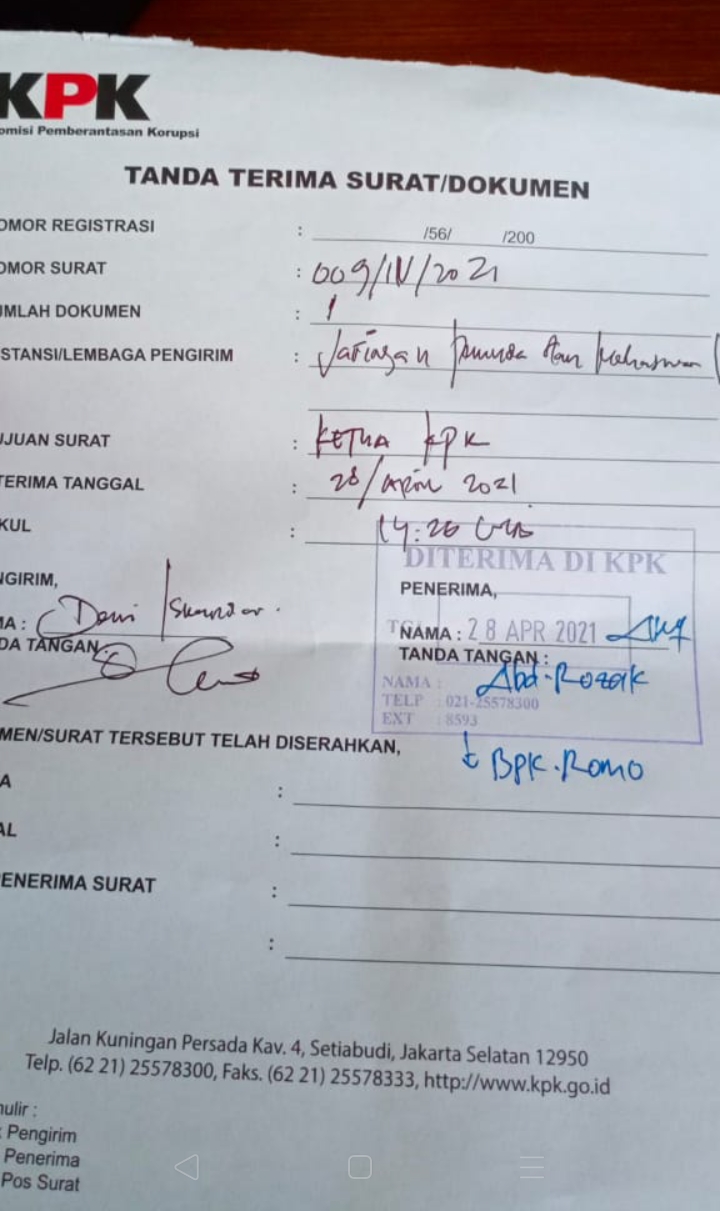 KPK
omisi Pemberantasan Korupsi
TANDA TERIMA SURAT/DOKUMEN
OMOR REGISTRASI : /56/ /200
OMOR SURAT : 009/IV/2021
UMLAH DOKUMEN : 1
STANSI/LEMBAGA PENGIRIM : Jaringan Pemuda Dan Mahasiswa (
UJUAN SURAT : KETUA KPK
TERIMA TANGGAL : 28/April 2021
KUL : 14:26 WIB
DITERIMA DI KPK
NGIRIM, PENERIMA,
MA : Iskandar.
TGL NAMA : 28 APR 2021
DA TANGAN TANDA TANGAN :
Abd. Rozak
NAMA :
TELP : 021-25578300
EXT : 8593
MEN/SURAT TERSEBUT TELAH DISERAHKAN,
Bpk. Romo
A :
AL :
ENERIMA SURAT :
:
Jalan Kuningan Persada Kav. 4, Setiabudi, Jakarta Selatan 12950
Telp. (62 21) 25578300, Faks. (62 21) 25578333, http://www.kpk.go.id
mulir :
Pengirim
Penerima
Pos Surat